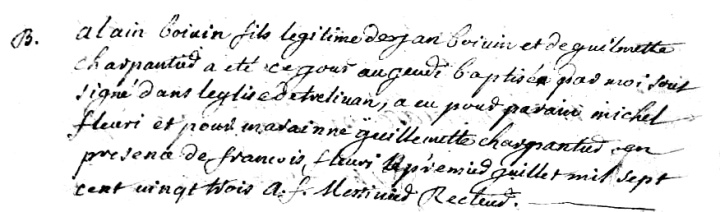 B. alain boivin fils legitime de jan boivin et de guilmette
charpantud a eté ce jour au jeudi baptisé par moi sous
signé dans leglise de trelivan, a eu pour parain michel
fleuri et pour marainne guillemette charpantud en
presence de francois fleuri le premied juillet mil sept
cent vingt trois a. f. Recteud.